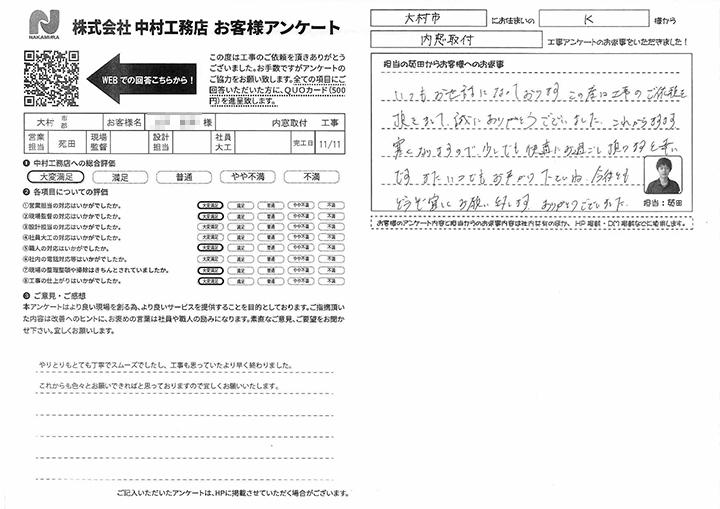 N
NAKAMURA
株式会社 中村工務店 お客様アンケート
WEBでの回答こちらから!
この度は工事のご依頼を頂きありがとう
ございました。お手数ですがアンケートの
ご協力をお願い致します。全ての項目にご
回答いただいた方に、QUOカード(500
円)を進呈致します。
大村 市 郡 お客様名 様 内窓取付 工事
営業担当 苑田 現場監督 設計担当 社員大工 完工日 11/11
❶ 中村工務店への総合評価
大変満足 満足 普通 やや不満 不満
❷ 各項目についての評価
①営業担当の対応はいかがでしたか。 大変満足 満足 普通 やや不満 不満
②現場監督の対応はいかがでしたか。 大変満足 満足 普通 やや不満 不満
③設計担当の対応はいかがでしたか。 大変満足 満足 普通 やや不満 不満
④社員大工の対応はいかがでしたか。 大変満足 満足 普通 やや不満 不満
⑤職人の対応はいかがでしたか。 大変満足 満足 普通 やや不満 不満
⑥社内の電話対応等はいかがでしたか。 大変満足 満足 普通 やや不満 不満
⑦現場の整理整頓や掃除はきちんとされていましたか。 大変満足 満足 普通 やや不満 不満
⑧工事の仕上がりはいかがでしたか。 大変満足 満足 普通 やや不満 不満
❸ ご意見・ご感想
本アンケートはより良い現場を創る為、より良いサービスを提供することを目的としております。ご指摘頂い
た内容は改善へのヒントに、お褒めの言葉は社員や職人の励みになります。素直なご意見、ご要望をお聞か
せ下さい。宜しくお願いします。
やりとりもとても丁寧でスムーズでしたし、工事も思っていたより早く終わりました。
これからも色々とお願いできればと思っておりますので宜しくお願いいたします。
ご記入いただいたアンケートは、HPに掲載させていただく場合がございます。
大村市 にお住まいの K 様から
内窓取付 工事アンケートのお返事をいただきました!
担当の苑田からお客様へのお返事
いつもお世話になっております。この度は工事のご依頼を
頂きまして、誠にありがとうございました。これからますます
寒くなりますので、少しでも快適にお過ごし頂けますと幸い
です。またいつでもお声がけ下さいね。今後とも
どうぞ宜しくお願い致します。ありがとうございました。
担当:苑田
お客様のアンケート内容と担当からのお返事内容は社内共有のほか、HP掲載・DM掲載などに使用します。